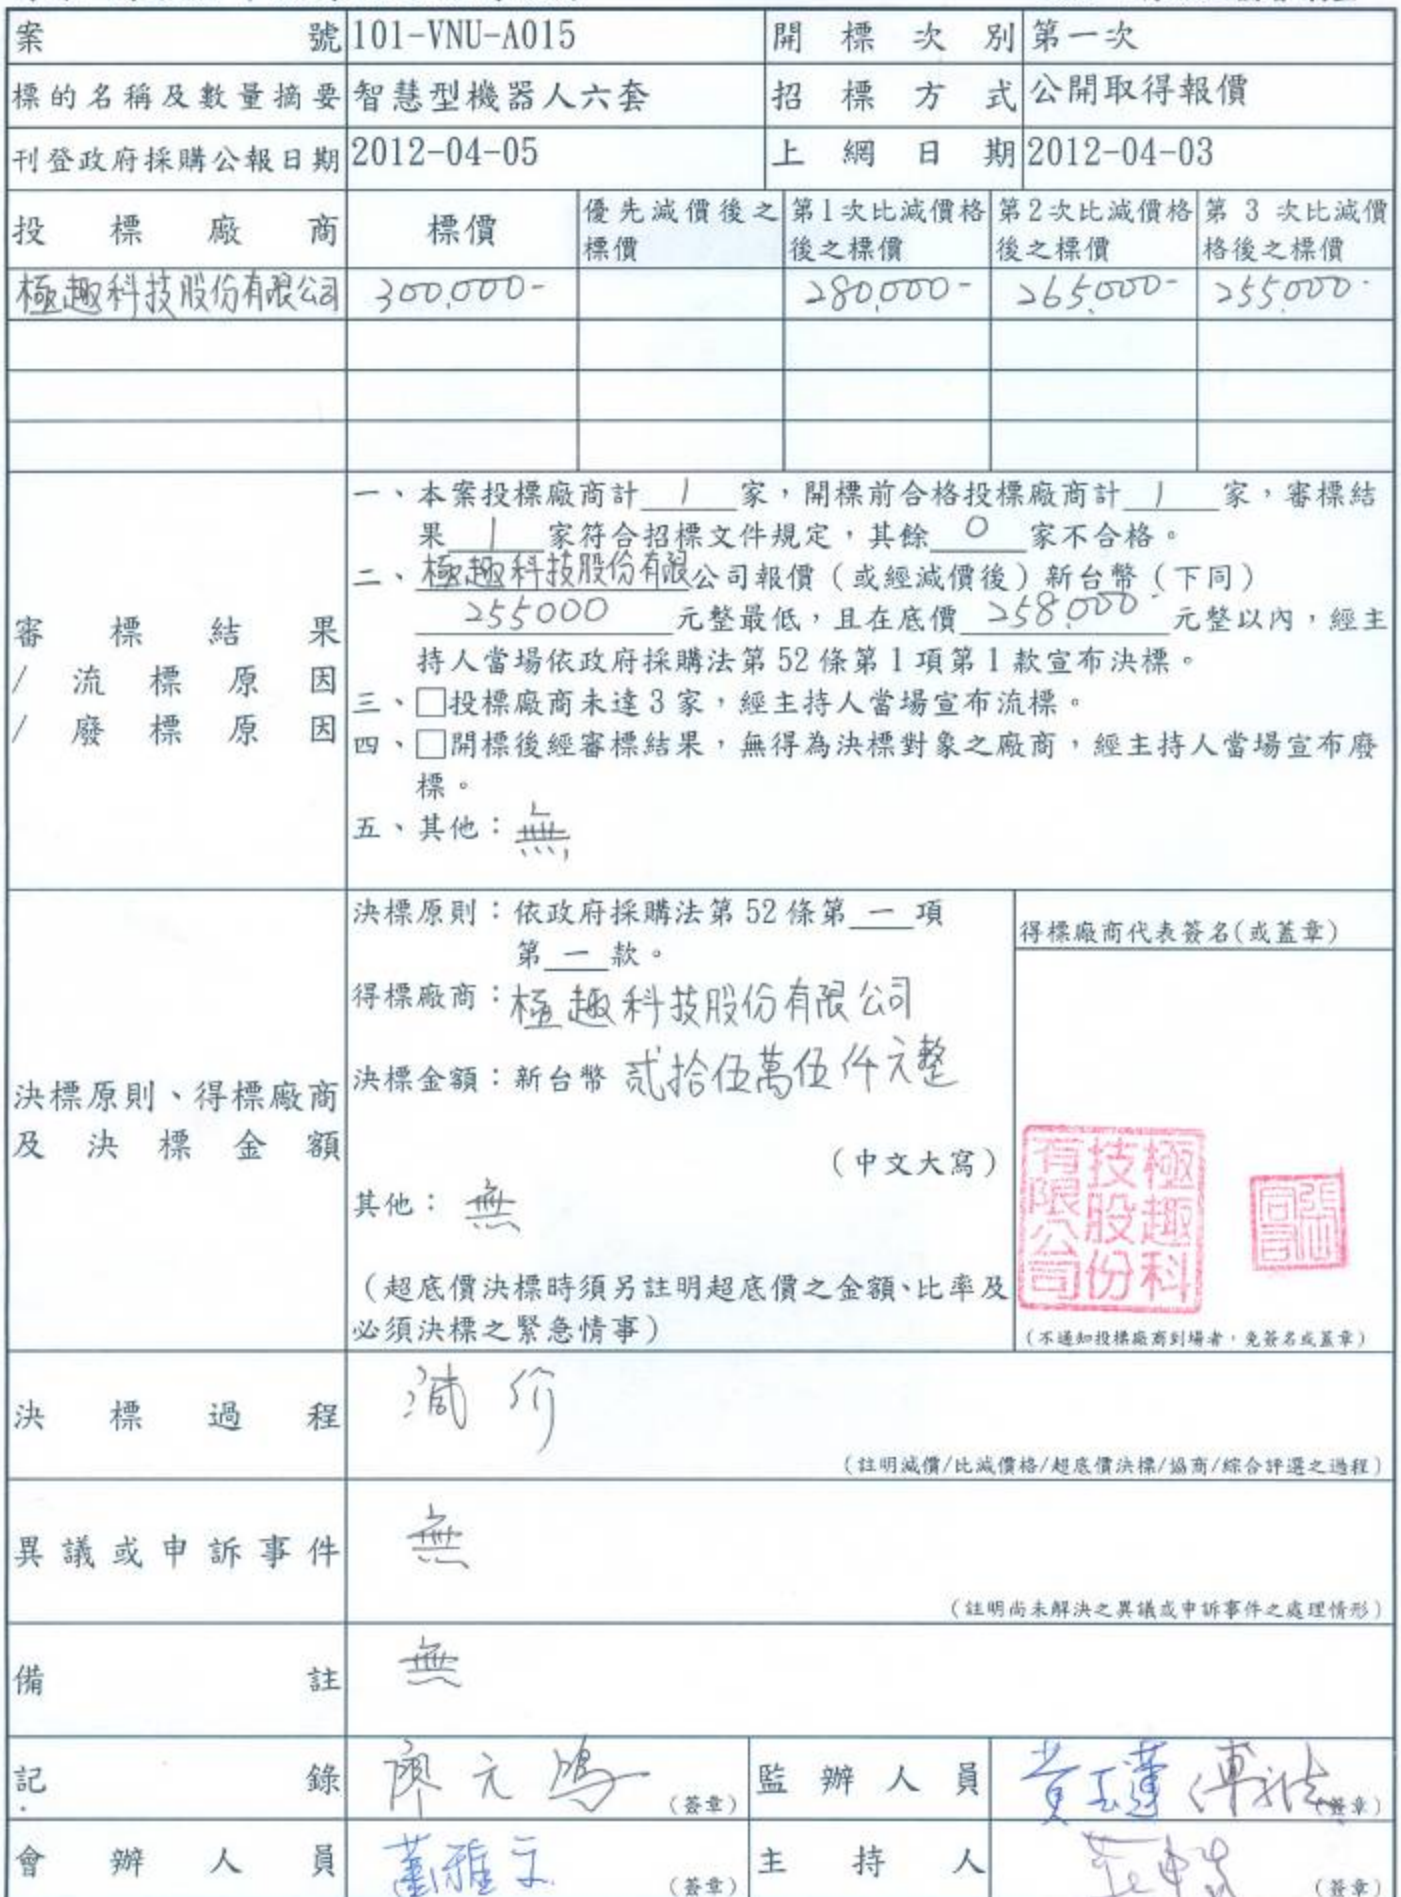 案號 101-VNU-A015 開標次別 第一次
標的名稱及數量摘要 智慧型機器人六套 招標方式 公開取得報價
刊登政府採購公報日期 2012-04-05 上網日期 2012-04-03
投標廠商 標價 優先減價後之標價 第1次比減價格後之標價 第2次比減價格後之標價 第3次比減價格後之標價
極趣科技股份有限公司 300,000- 280,000- 265,000- 255000-
審標結果
/流標原因
/廢標原因
一、本案投標廠商計 1 家，開標前合格投標廠商計 1 家，審標結
果 1 家符合招標文件規定，其餘 0 家不合格。
二、極趣科技股份有限公司報價（或經減價後）新台幣（下同）
255000 元整最低，且在底價 258,000- 元整以內，經主
持人當場依政府採購法第52條第1項第1款宣布決標。
三、□投標廠商未達3家，經主持人當場宣布流標。
四、□開標後經審標結果，無得為決標對象之廠商，經主持人當場宣布廢
標。
五、其他：無
決標原則、得標廠商
及決標金額
決標原則：依政府採購法第52條第一項
第一款。
得標廠商：極趣科技股份有限公司
決標金額：新台幣 貳拾伍萬伍仟元整
（中文大寫）
其他：無
（超底價決標時須另註明超底價之金額、比率及
必須決標之緊急情事）
得標廠商代表簽名(或蓋章)
極趣科
技股份
有限公司
（不通知投標廠商到場者，免簽名或蓋章）
決標過程 減价
（註明減價/比減價格/超底價決標/協商/綜合評選之過程）
異議或申訴事件 無
（註明尚未解決之異議或申訴事件之處理情形）
備註 無
記錄 廖元鴻 （簽章） 監辦人員 黃玉蓮 （簽章）
會辦人員 蕭雅文 （簽章） 主持人 （簽章）